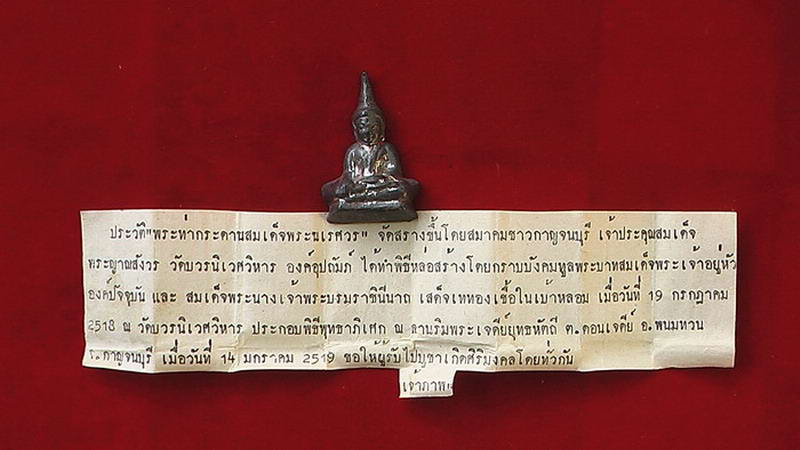 ประวัติ"พระท่ากระดานสมเด็จพระนเรศวร" จัดสร้างขึ้นโดยสมาคมชาวกาญจนบุรี เจ้าประคุณสมเด็จ
พระญาณสังวร วัดบวรนิเวศวิหาร องค์อุปถัมภ์ ได้ทำพิธีหล่อสร้างโดยกราบบังคมทูลพระบาทสมเด็จพระเจ้าอยู่หัว
องค์ปัจจุบัน และ สมเด็จพระนางเจ้าพระบรมราชินีนาถ เสด็จเททองเชื้อในเบ้าหลอม เมื่อวันที่ 19 กรกฎาคม
2518 ณ วัดบวรนิเวศวิหาร ประกอบพิธีพุทธาภิเศก ณ ลานริมพระเจดีย์ยุทธหัตถี ต.ดอนเจดีย์ อ.พนมทวน
จ.กาญจนบุรี เมื่อวันที่ 14 มกราคม 2519 ขอให้ผู้รับไปบูชาเกิดศิริมงคลโดยทั่วกัน
เจ้าภาพ